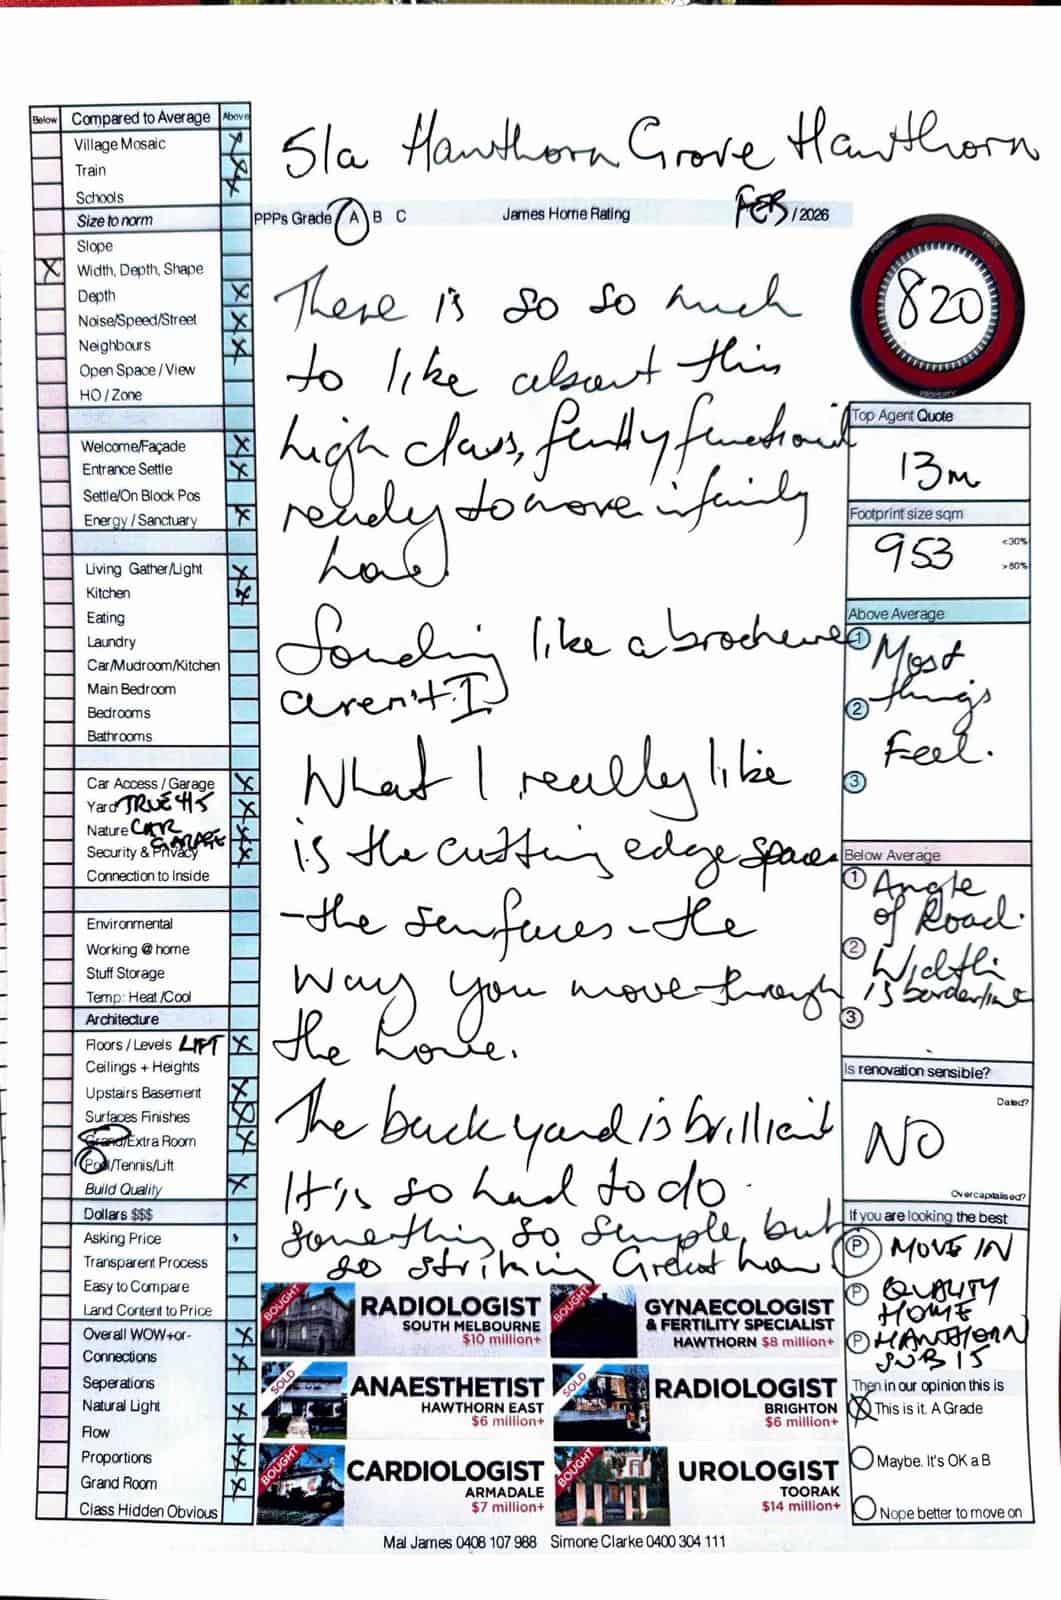 51a Hawthorn Grove Hawthorn
PPPs Grade A B C
James Home Rating
FEB / 2026
Below
Compared to Average
Above
Village Mosaic X
Train X
Schools X
Size to norm
Slope
X Width, Depth, Shape
Depth X
Noise/Speed/Street X
Neighbours X
Open Space / View
HO / Zone
Welcome/Façade X
Entrance Settle X
Settle/On Block Pos
Energy / Sanctuary X
Living Gather/Light X
Kitchen X
Eating
Laundry
Car/Mudroom/Kitchen
Main Bedroom
Bedrooms
Bathrooms
Car Access / Garage X
Yard TRUE 4/5 X
Nature CAR X
GARAGE
Security & Privacy X
Connection to Inside
Environmental
Working @ home
Stuff Storage
Temp: Heat /Cool
Architecture
Floors / Levels LIFT X
Ceilings + Heights
Upstairs Basement X
Surfaces Finishes X
Grand/Extra Room X
Pool/Tennis/Lift
Build Quality X
Dollars $$$
Asking Price
Transparent Process
Easy to Compare
Land Content to Price
Overall WOW+or- X
Connections X
Seperations
Natural Light X
Flow X
Proportions X
Grand Room X
Class Hidden Obvious
There is so so much
to like about this
high class, functional
ready to move in family
home.
Sounding like a brochure
aren't I
What I really like
is the cutting edge spaces
- the surfaces - the
way you move through
the home.
The backyard is brilliant
It is so hard to do
something so simple, but
so striking Great home
POSITION
PRICE
PROPERTY
820
Top Agent Quote
13m
Footprint size sqm
953
<30%
>60%
Above Average
1 Most
things
2
Feel.
3
Below Average
1 Angle
of Road.
2 Width
is borderline
3
Is renovation sensible?
Dated?
NO
Overcapitalised?
If you are looking the best
P MOVE IN
P QUALITY
HOME
P HAWTHORN
SUB 15
Then in our opinion this is
X This is it. A Grade
Maybe. It's OK a B
Nope better to move on
BOUGHT
RADIOLOGIST
SOUTH MELBOURNE
$10 million+
BOUGHT
GYNAECOLOGIST
& FERTILITY SPECIALIST
HAWTHORN $8 million+
SOLD
ANAESTHETIST
HAWTHORN EAST
$6 million+
SOLD
RADIOLOGIST
BRIGHTON
$6 million+
BOUGHT
CARDIOLOGIST
ARMADALE
$7 million+
BOUGHT
UROLOGIST
TOORAK
$14 million+
Mal James 0408 107 988 Simone Clarke 0400 304 111